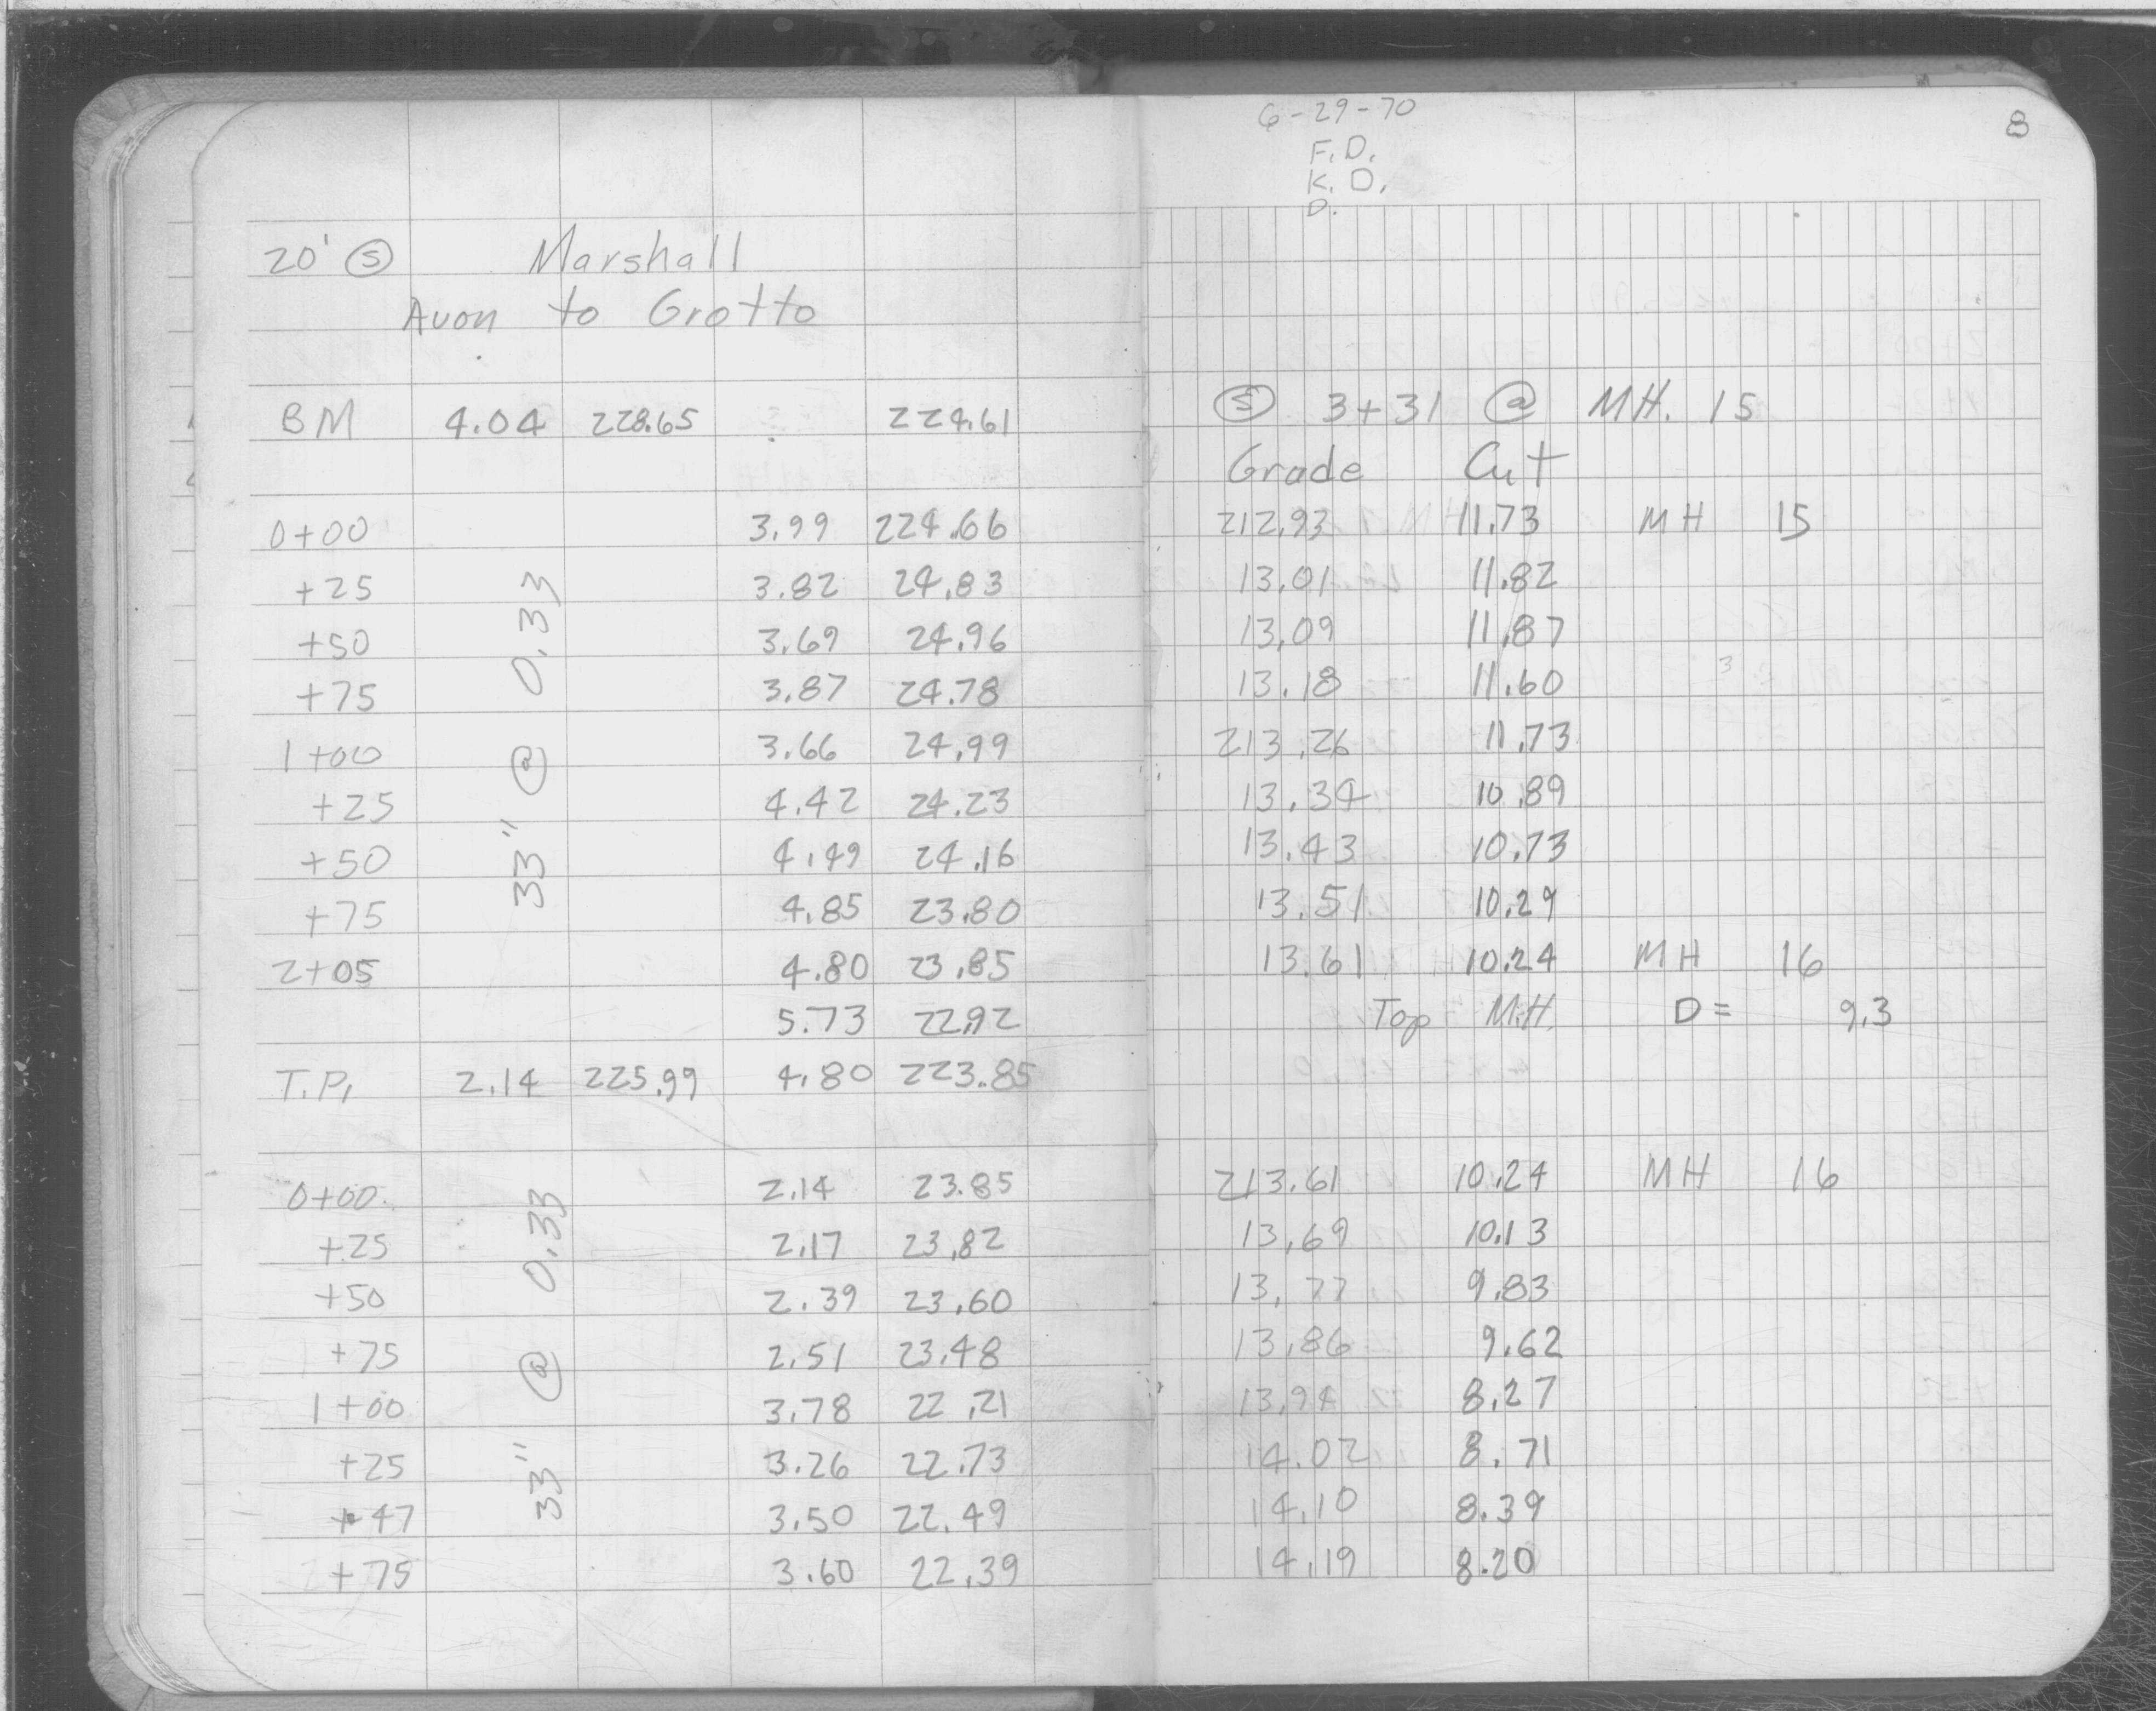 6-29-70
8
F.D.
K.D.
D.
20' Ⓢ Marshall
Avon to Grotto
BM 4.04 228.65 224.61
0+00 3.99 224.66
+25 3.82 24.83
+50 3.69 24.96
+75 3.87 24.78
1+00 3.66 24.99
+25 4.42 24.23
+50 4.49 24.16
+75 4.85 23.80
2+05 4.80 23.85
5.73 22.92
33" @ 0.33
T.P. 2.14 225.99 4.80 223.85
0+00 2.14 23.85
+25 2.17 23.82
+50 2.39 23.60
+75 2.51 23.48
1+00 3.78 22.21
+25 3.26 22.73
+47 3.50 22.49
+75 3.60 22.39
33" @ 0.33
Ⓢ 3+31 @ MH. 15
Grade Cut
212.93 11.73 MH 15
13.01 11.82
13.09 11.87
13.18 11.60
213.26 11.73
13.34 10.89
13.43 10.73
13.51 10.29
13.61 10.24 MH 16
Top M.H. D = 9.3
213.61 10.24 MH 16
13.69 10.13
13.77 9.83
13.86 9.62
13.94 8.27
14.02 8.71
14.10 8.39
14.19 8.20